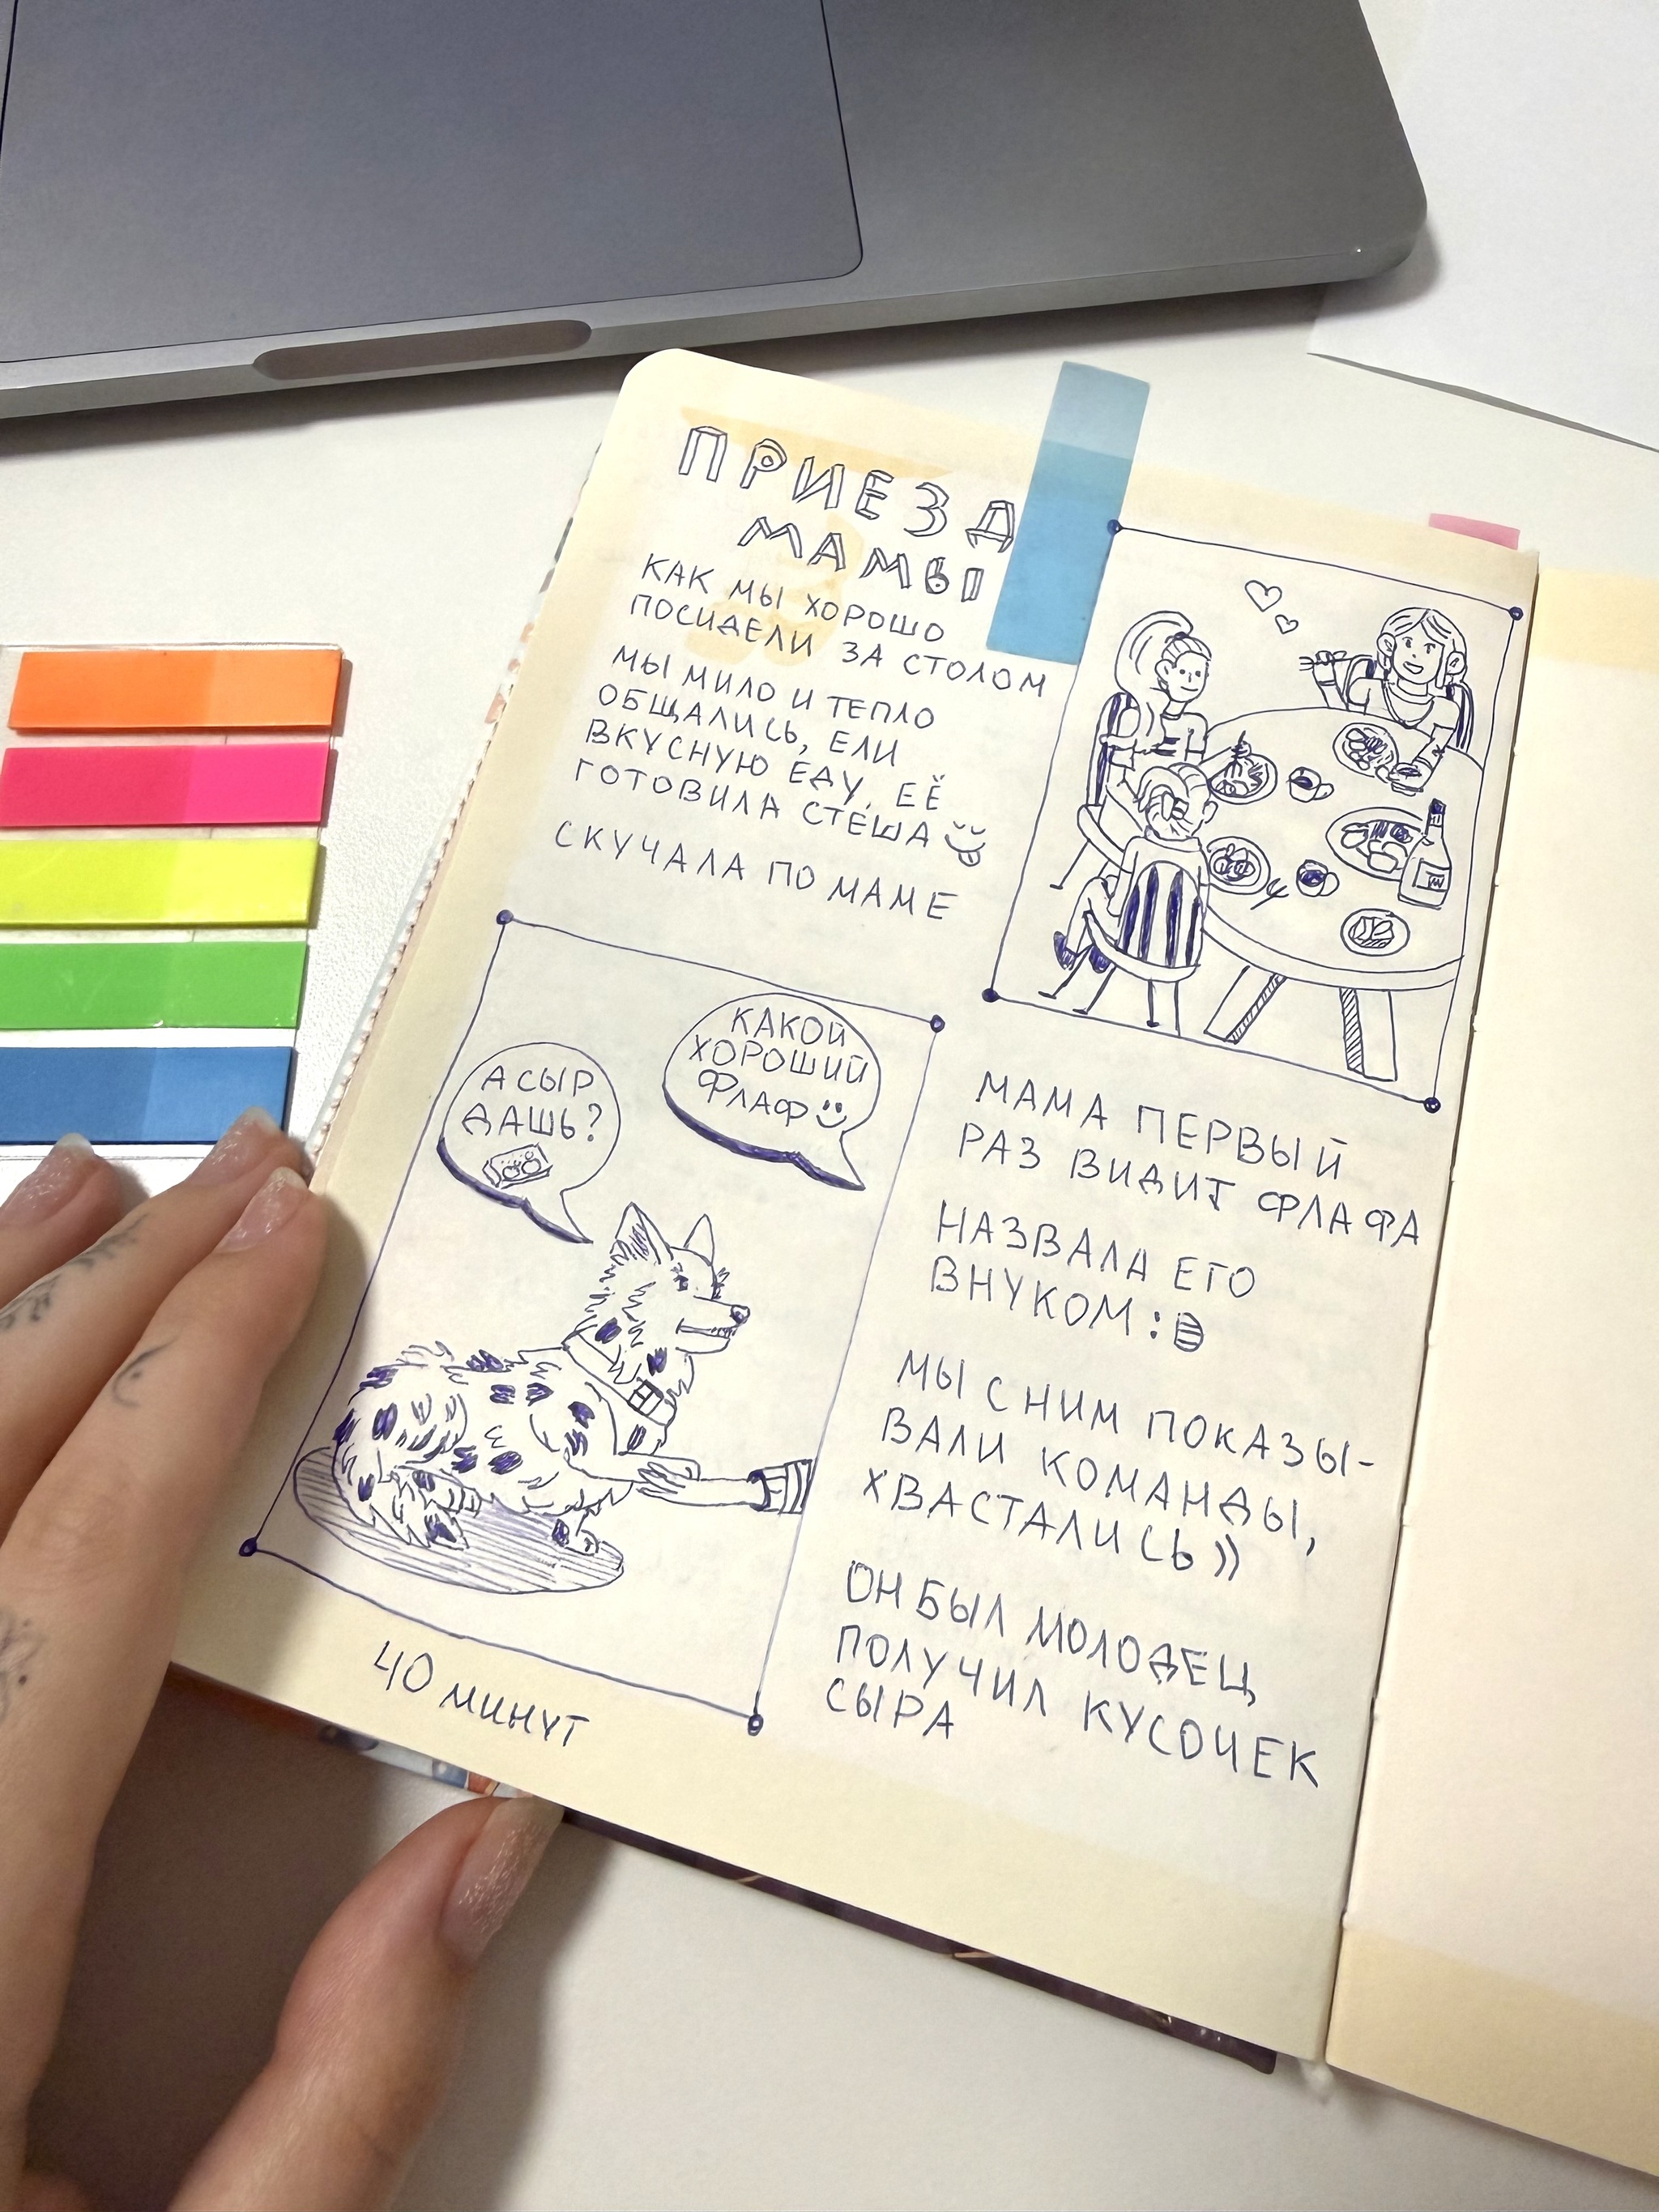 ПРИЕЗД
МАМЫ
КАК МЫ ХОРОШО
ПОСИДЕЛИ ЗА СТОЛОМ
МЫ МИЛО И ТЕПЛО
ОБЩАЛИСЬ, ЕЛИ
ВКУСНУЮ ЕДУ, ЕЁ
ГОТОВИЛА СТЕША
СКУЧАЛА ПО МАМЕ
А СЫР
ДАШЬ?
КАКОЙ
ХОРОШИЙ
ФЛАФ
40 МИНУТ
МАМА ПЕРВЫЙ
РАЗ ВИДИТ ФЛАФА
НАЗВАЛА ЕГО
ВНУКОМ :D
МЫ С НИМ ПОКАЗЫ-
ВАЛИ КОМАНДЫ,
ХВАСТАЛИСЬ))
ОН БЫЛ МОЛОДЕЦ
ПОЛУЧИЛ КУСОЧЕК
СЫРА